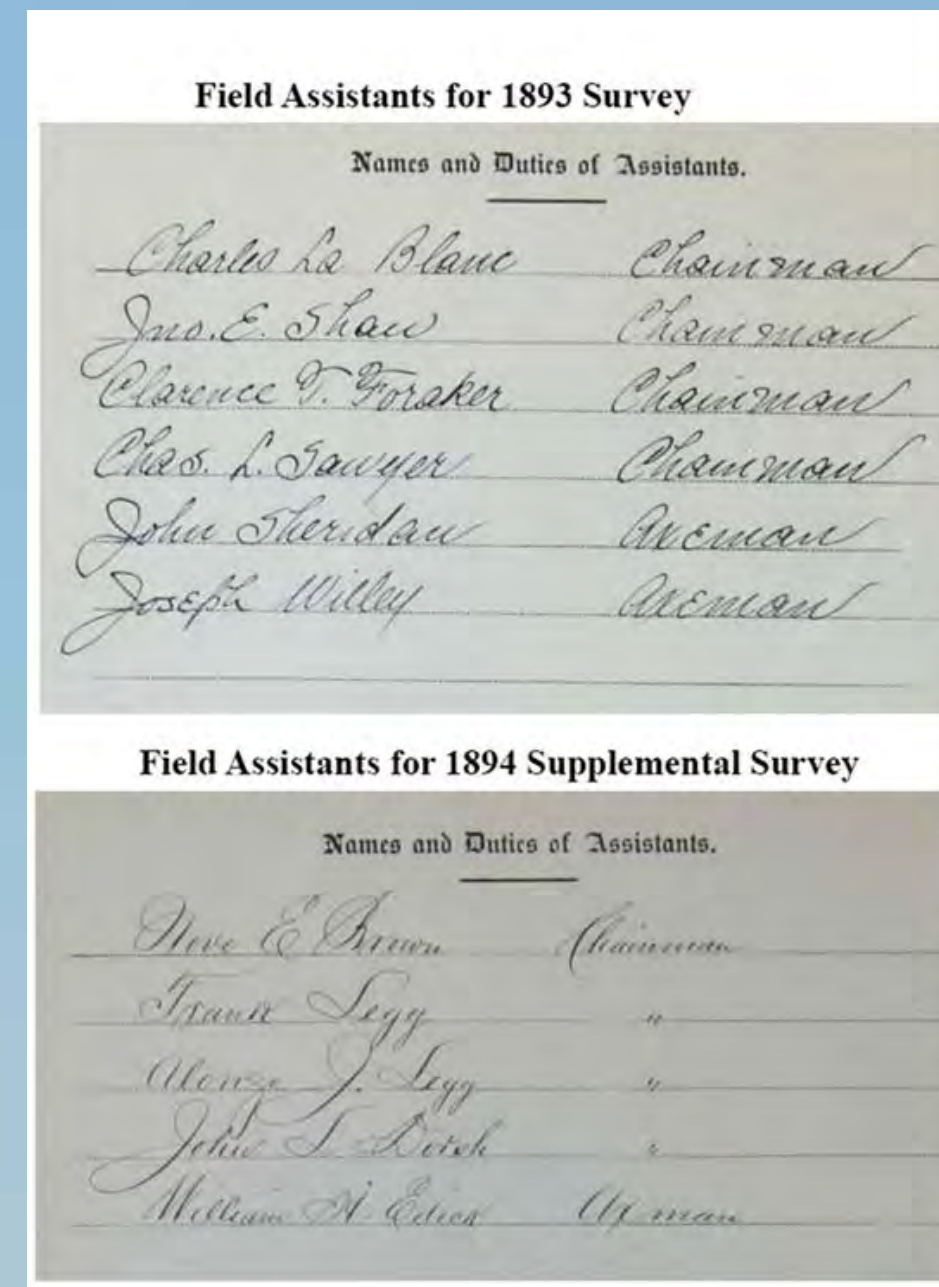 Field Assistants for 1893 Survey
Names and Duties of Assistants.
Charles La Blanc Chainman
Jno. E. Shaw Chainman
Clarence T. Foraker Chainman
Chas. L. Sawyer Chainman
John Sheridan Axeman
Joseph Willey Axeman
Field Assistants for 1894 Supplemental Survey
Names and Duties of Assistants.
E Brown Chainman
Frank Legg "
Alonzo J. Legg "
John "
William H. Edick Axman